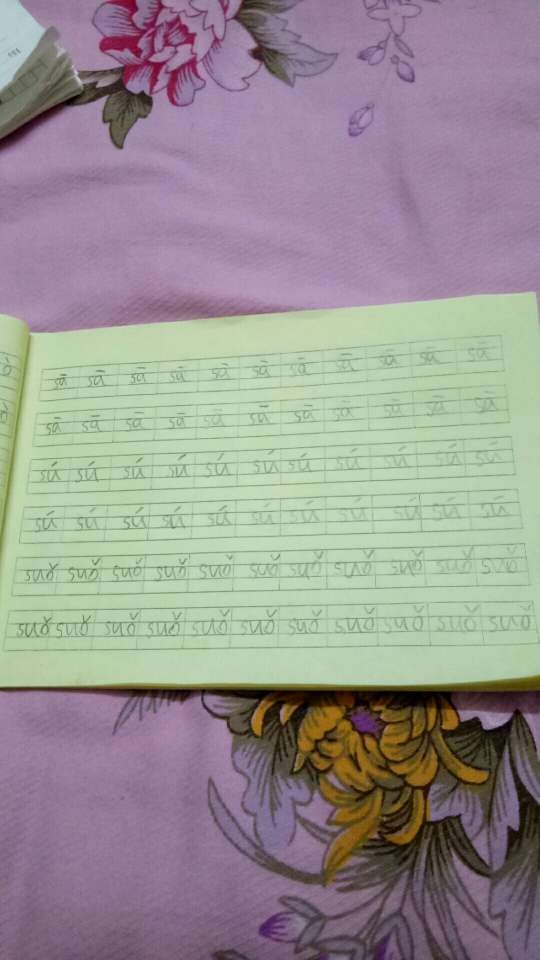 sā sā sā sā sā sā sā sā sā sā sā
sā sā sā sā sā sā sā sā sā sā sā
sú sú sú sú sú sú sú sú sú sú sú
sú sú sú sú sú sú sú sú sú sú sú
suǒ suǒ suǒ suǒ suǒ suǒ suǒ suǒ suǒ suǒ suǒ
suǒ suǒ suǒ suǒ suǒ suǒ suǒ suǒ suǒ suǒ suǒ